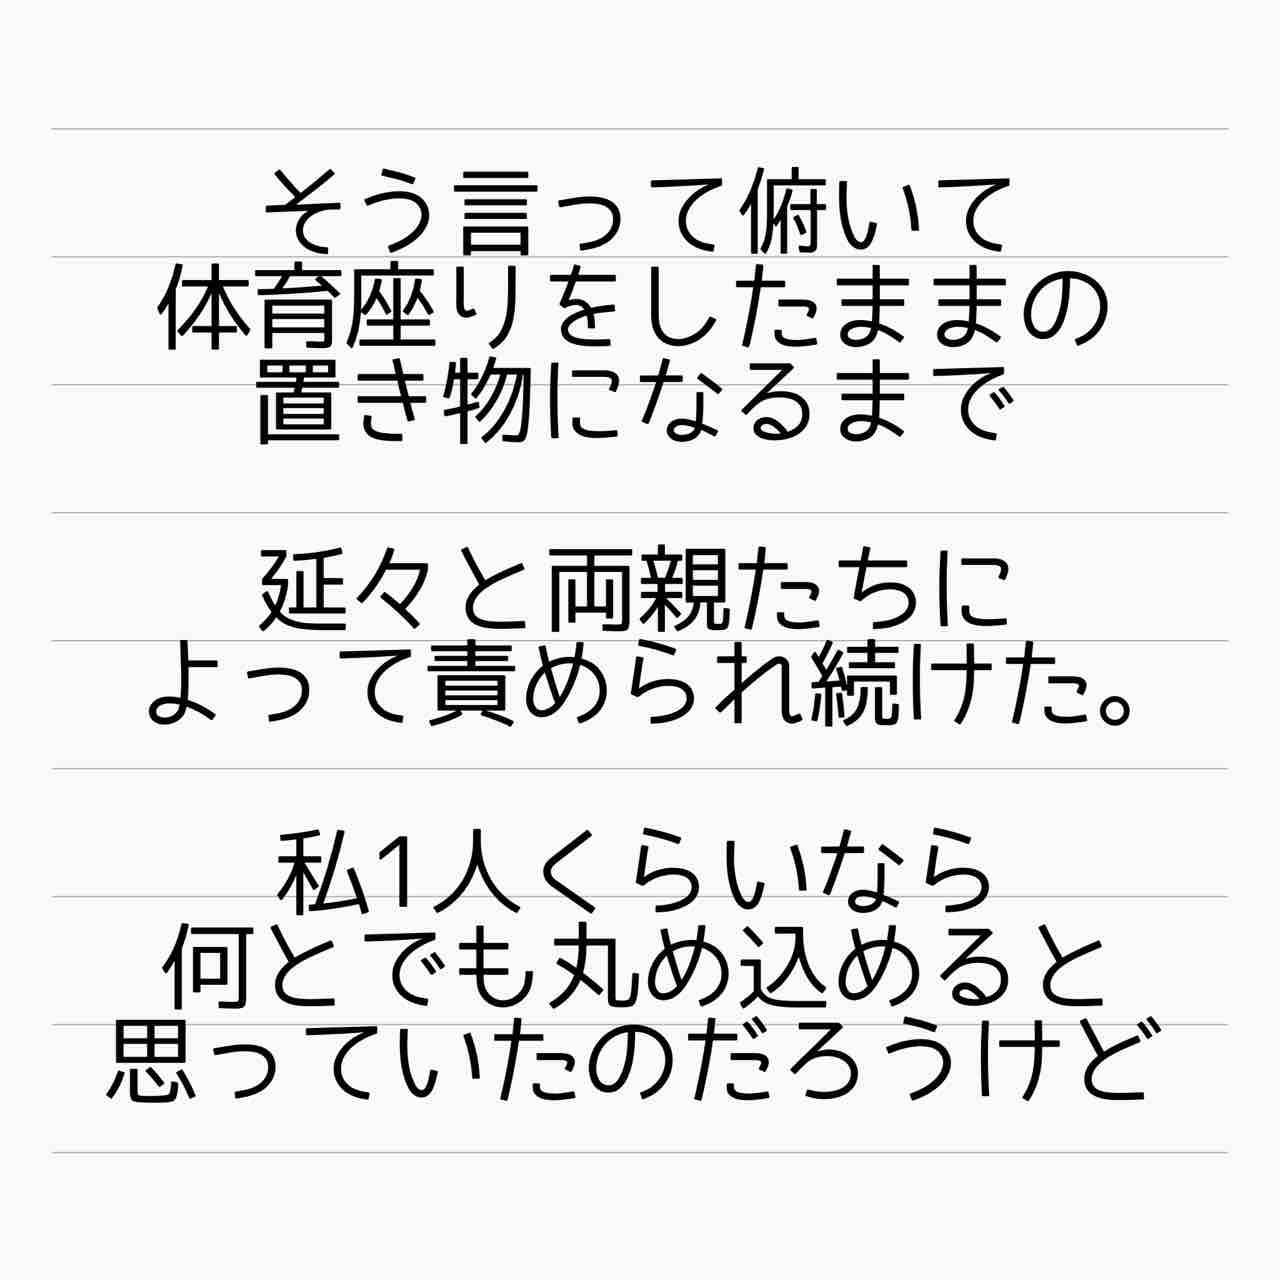 そう言って俯いて
体育座りをしたままの
置き物になるまで
延々と両親たちに
よって責められ続けた。
私1人くらいなら
何とでも丸め込めると
思っていたのだろうけど